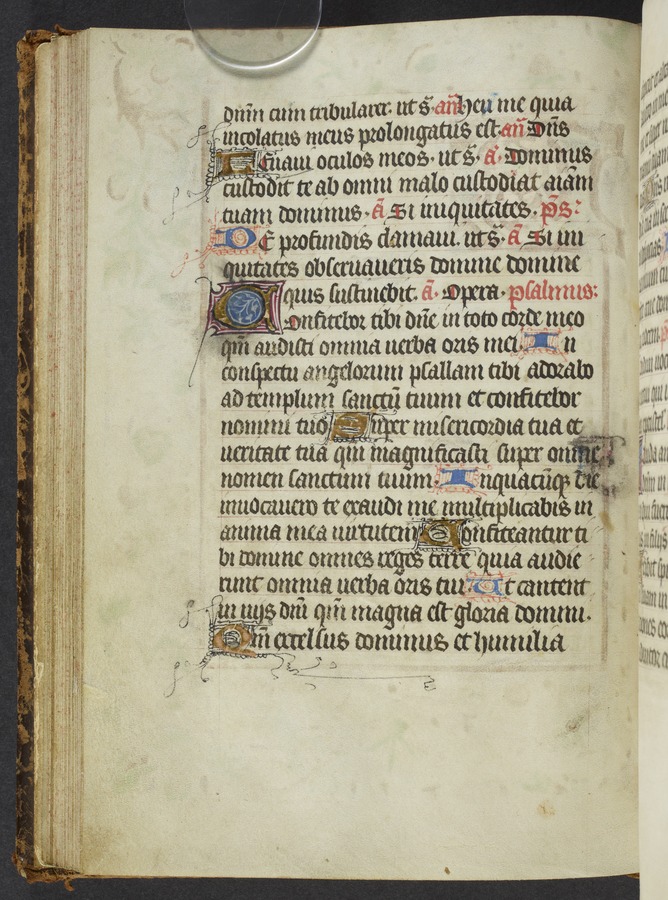 dn̄m cum tribularer. ut s̄. an̄ heu me quia
incolatus meus prolongatus est. an̄ Dn̄s
Leuaui oculos meos. ut s̄. ā. Dominus
custodit te ab omni malo custodiat aīam
tuam dominus. ā Si iniquitates. p̄s.
DE profundis clamaui. ut s̄. ā Si ini
quitates obseruaueris domine domine
quis sustinebit. ā. Opera. psalmus.
Confitebor tibi dn̄e in toto corde meo
qm̄ audisti omnia uerba oris mei. In
conspectu angelorum psallam tibi adorabo
ad templum sanctū tuum et confitebor
nomini tuo Super misericordia tua et
ueritate tua qm̄ magnificasti super omne
nomen sanctum tuum. In quacūqꝫ die
inuocauero te exaudi me multiplicabis in
anima mea uirtutem Confiteantur ti
bi domine omnes reges terre quia audie
runt omnia uerba oris tui. Et cantent
in uijs dn̄i qm̄ magna est gloria domini.
Qm̄ excelsus dominus et humilia